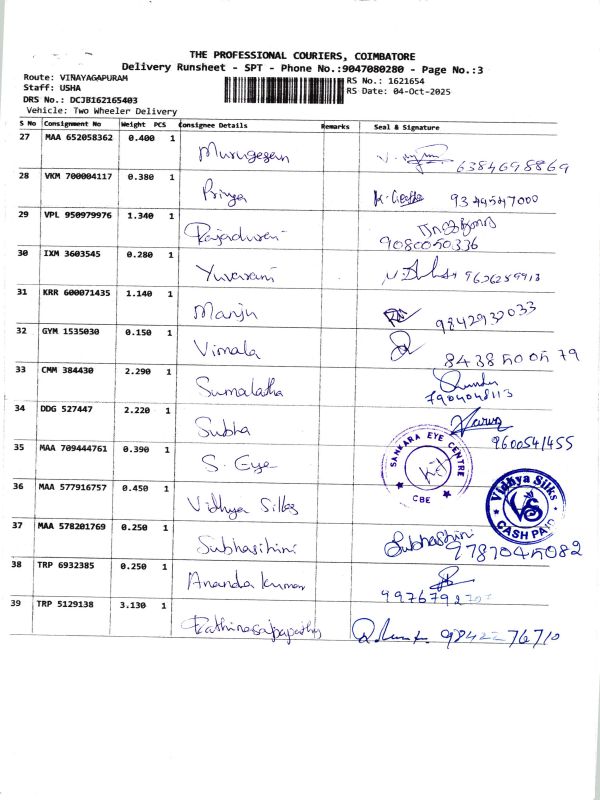 THE PROFESSIONAL COURIERS, COIMBATORE
Delivery Runsheet - SPT - Phone No.:9047080280 - Page No.:3
Route: VINAYAGAPURAM
RS No.: 1621654
Staff: USHA
RS Date: 04-Oct-2025
DRS No.: DCJB162165403
Vehicle: Two Wheeler Delivery
S No Consignment No Weight PCS Consignee Details Remarks Seal & Signature
27 MAA 652058362 0.400 1 Murugesan 6384698869
28 VKM 700004117 0.380 1 Priya 9344547000
29 VPL 950979976 1.340 1 Rajadurai 9080050336
30 IXM 3603545 0.280 1 Yuvarani 9626259913
31 KRR 600071435 1.140 1 Manju 9842932033
32 GYM 1535030 0.150 1 Vimala 8438500579
33 CMM 384430 2.290 1 Sumalatha 7904048113
34 DDG 527447 2.220 1 Subha 9600541455
35 MAA 709444761 0.390 1 S. Eye SANKARA EYE CENTRE CBE
36 MAA 577916757 0.450 1 Vidhya Silks Vidhya Silks VS CASH PAID
37 MAA 578201769 0.250 1 Subhasihini Subhashini 9787045082
38 TRP 6932385 0.250 1 Ananda Kumar
39 TRP 5129138 3.130 1